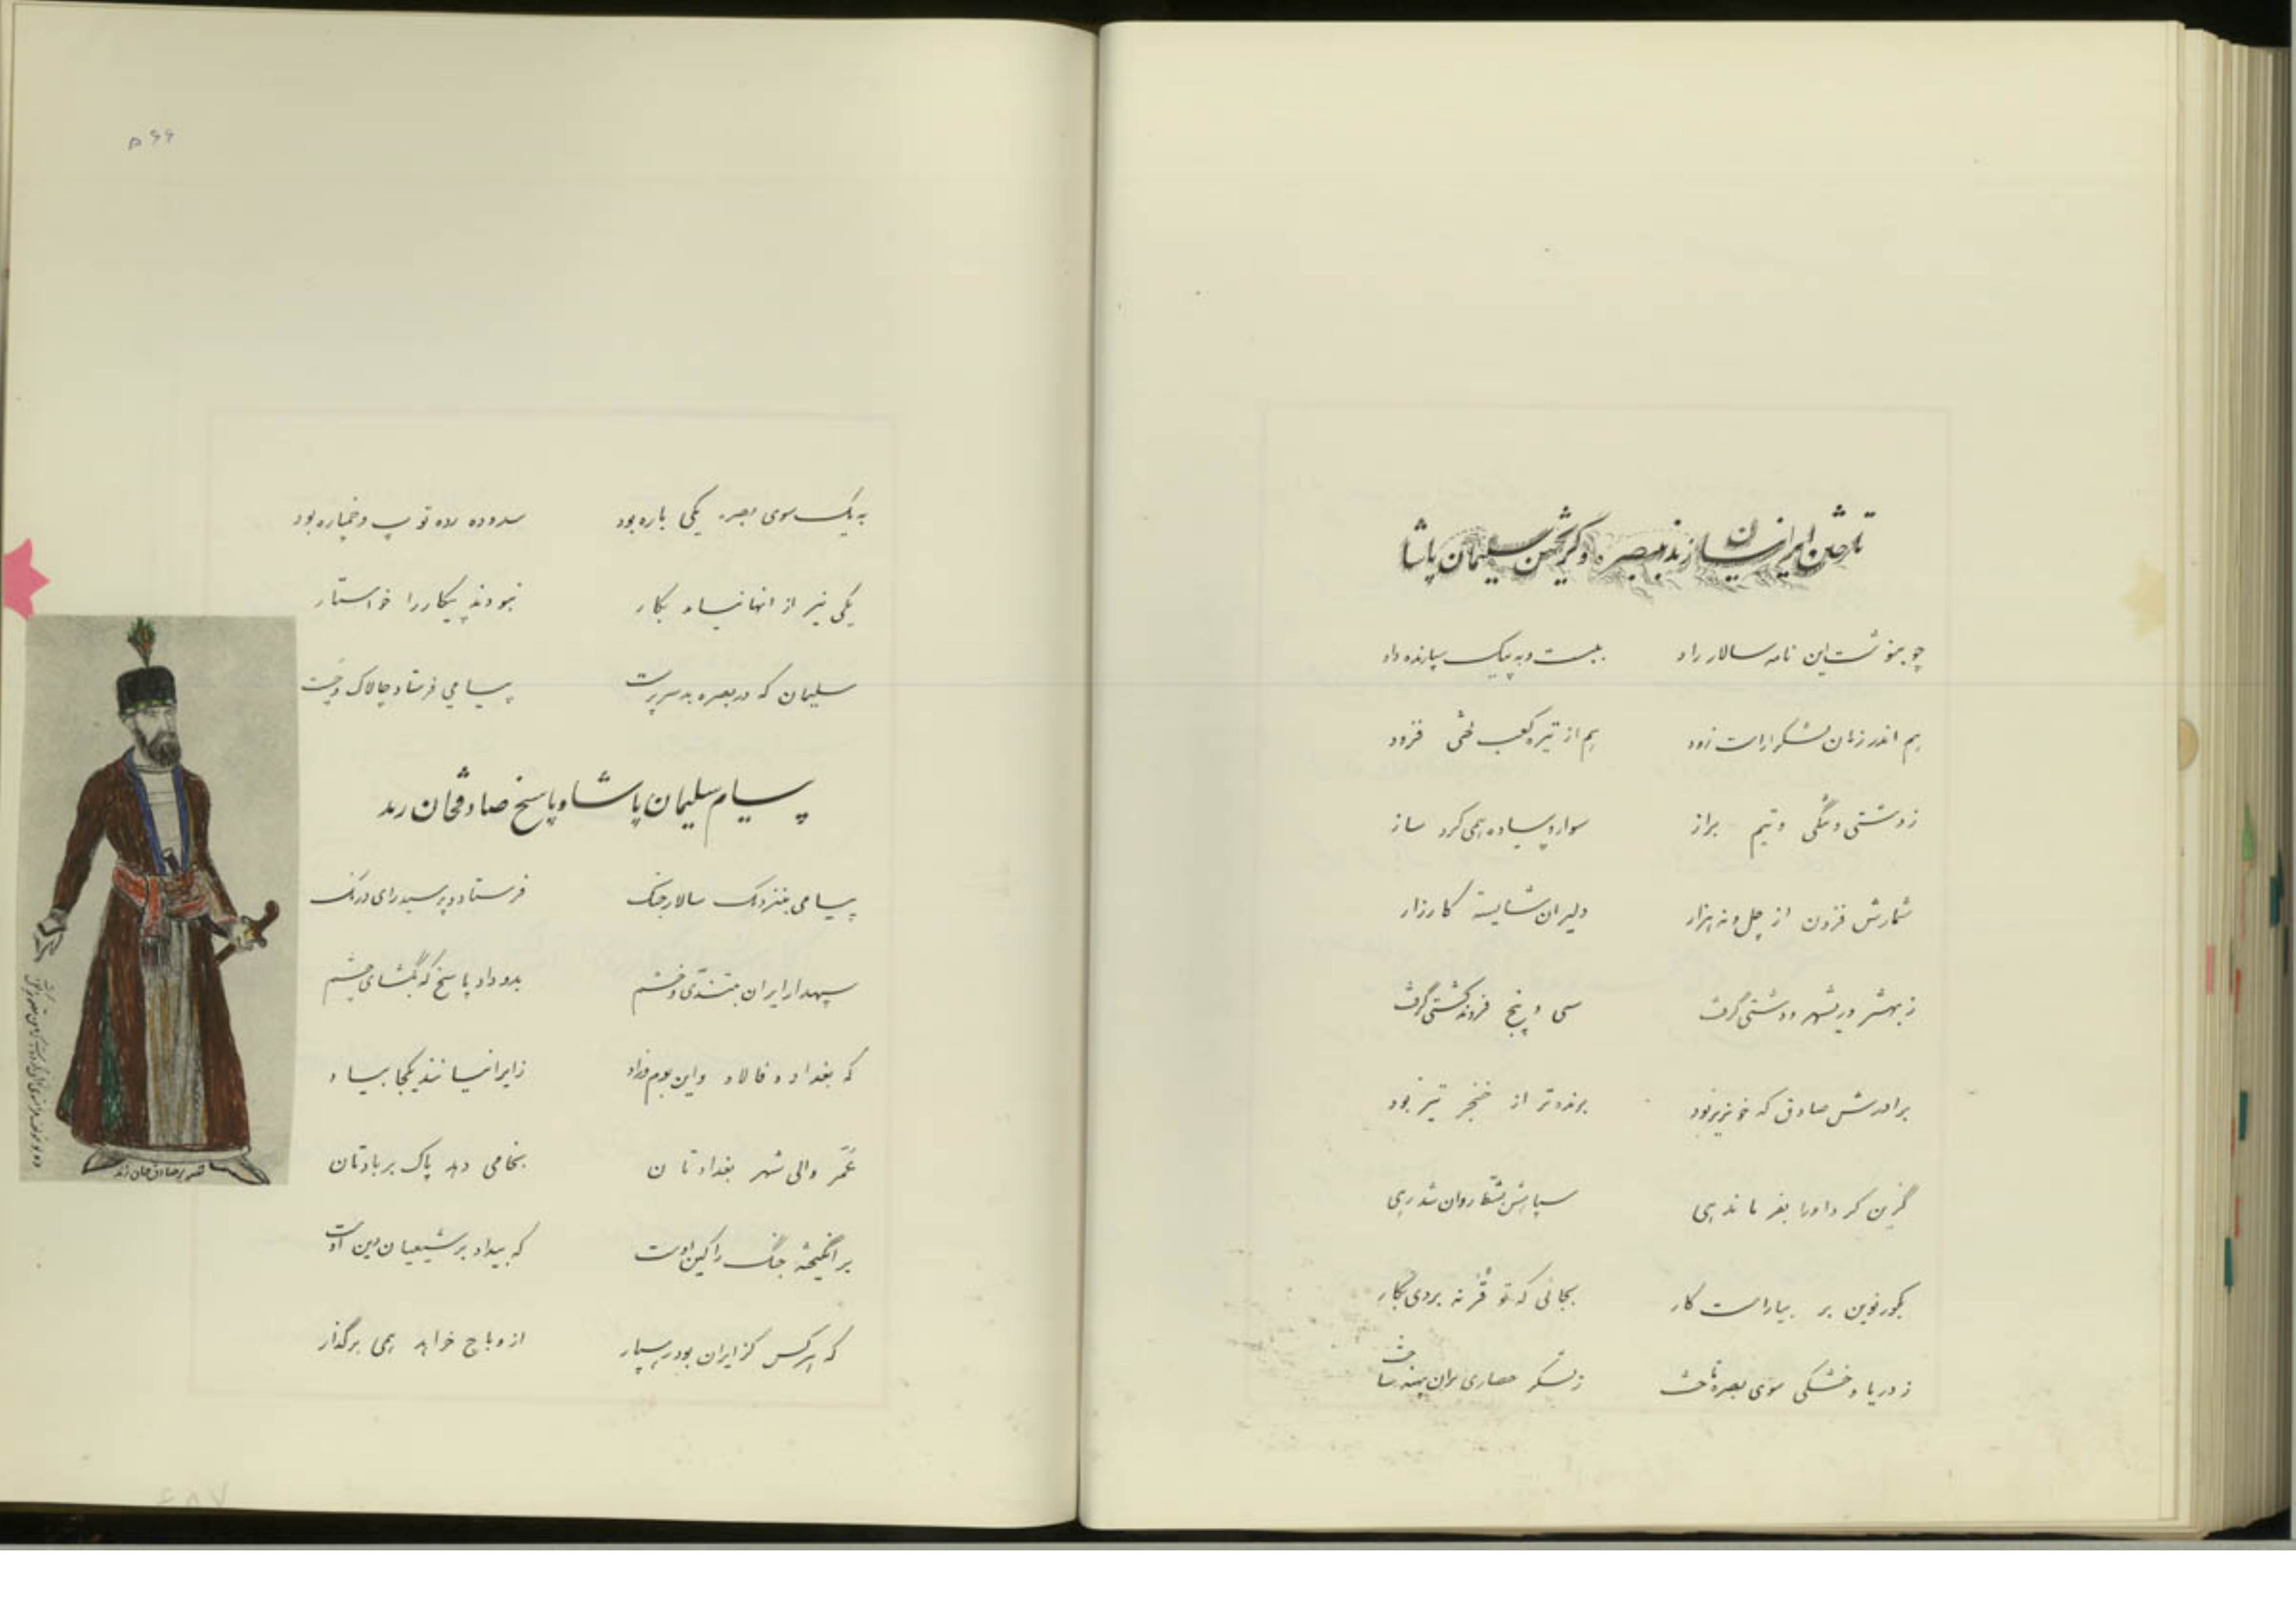 تاختن ایرانیان زند ببصره و گریختن سلیمان پاشا
چو بنوشت این نامه سالار راد ببست و به پیک سپارنده داد
هم اندر زمان لشکر آراست زود هم از تیره کعب فزود
ز دشتی و تنگی سوار و پیاده همی کرد ساز
شمارش فزون از چل و نه هزار دلیران شایسته کارزار
ز بهشر و ریشهر و دشتی گرفت سی و پنج فروند کشتی گرفت
برادرش صادق که خونریز بود برنده‌تر از خنجر تیز بود
گزین کرد او را بفرماندهی سپاهش روان شد رهی
بیاراست کار بجائی که تو
ز دریا و خشکی سوی بصره تاخت ز لشکر حصاری بران پهنه ساخت
۵۶۶
به یک سوی بصره یکی باره بود توپ و خمپاره بود
یکی نیز از آنها نیامد بکار نبودند پیکار را خواستار
سلیمان که در بصره بد سرپرست پیامی فرستاد چالاک و چست
پیام سلیمان پاشا و پاسخ صادقخان زند
پیامی بنزدیک سالار جنگ فرستاد و پرسید رای درنگ
سپهدار ایران بتندی و خشم بدو داد پاسخ که بگشای چشم
که بغداد و واین بوم و راد ز ایرانیانند یکجا بیاد
عمر والی شهر بغدادتان بخامی دهد پاک بر بادتان
برانگیخته جنگ را کین اوست که بیداد بر شیعیان دین اوست
که هر کس کز ایران بود رهسپار ازو باج خواهد همی برگذار
تصویر صادق خان زند